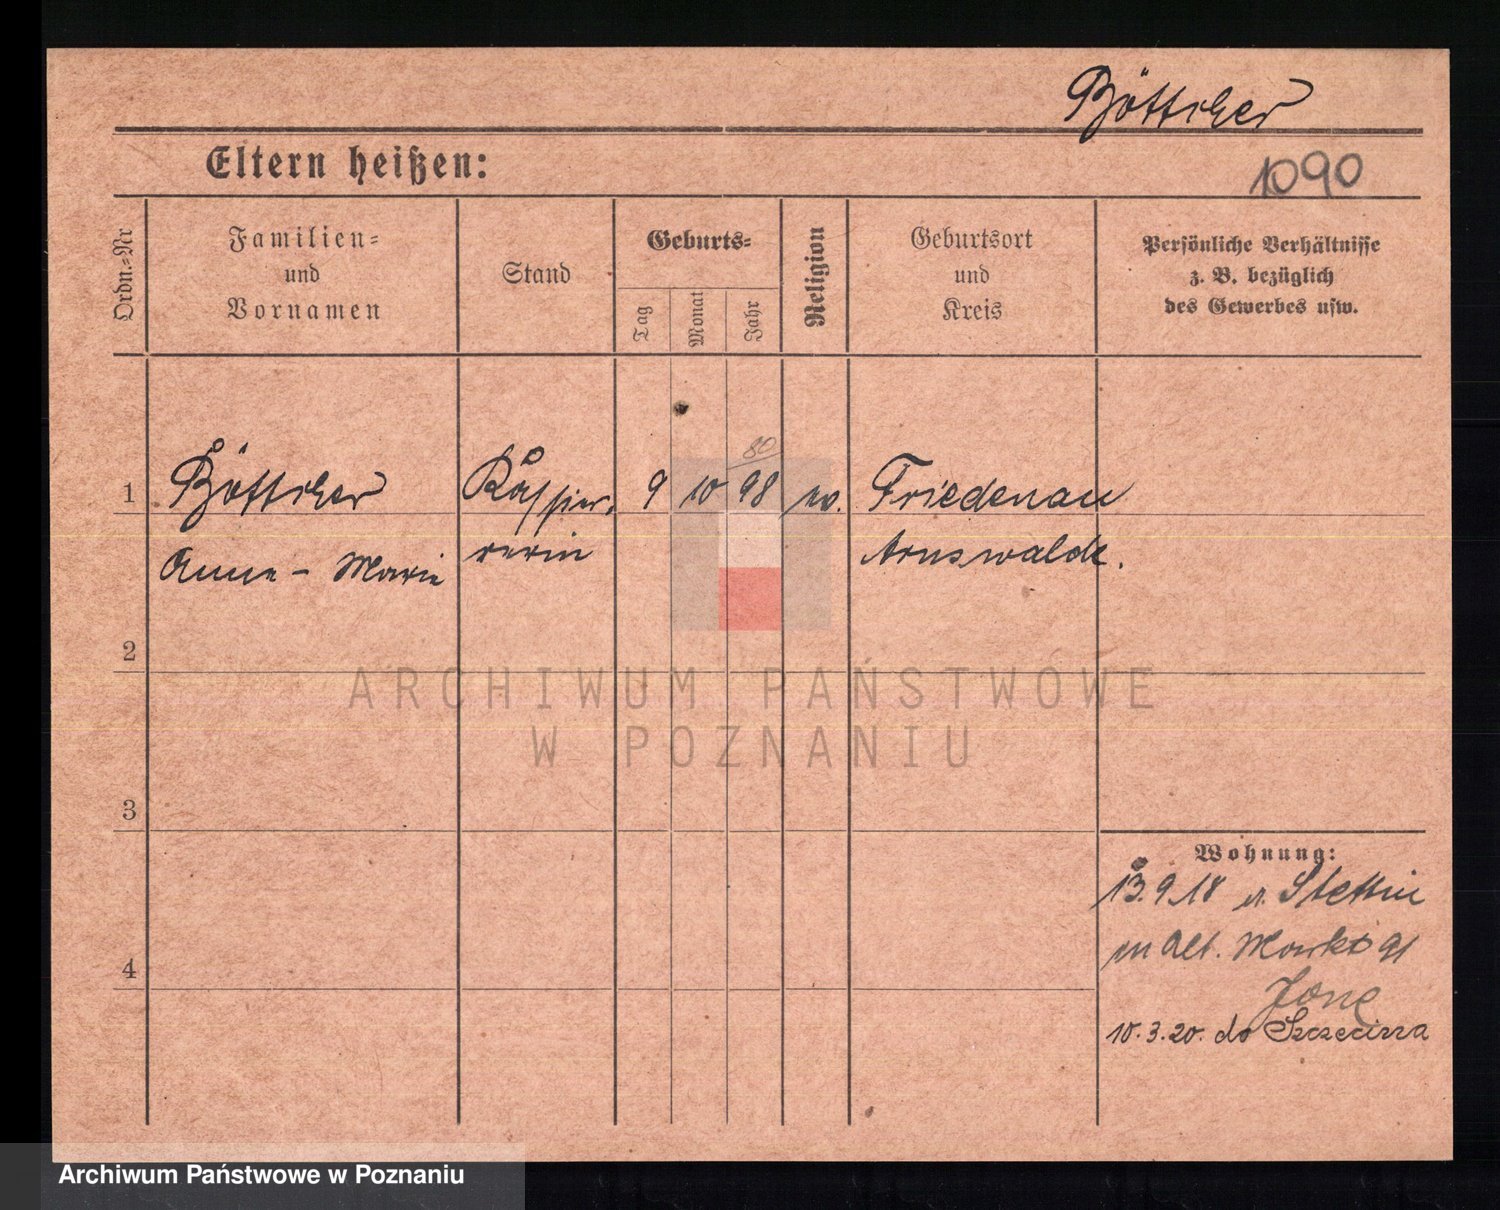 Böttcher
Eltern heißen:
1090
Ordn.=Nr
Familien=
und
Vornamen
Stand
Geburts=
Tag
Monat
Jahr
Religion
Geburtsort
und
Kreis
Persönliche Verhältnisse
z. B. bezüglich
des Gewerbes usw.
80
1 Böttcher Kassier= 9 10 98 ev. Friedenau
Anna - Marie rerin Arnswalde.
2
3
4
Wohnung:
13.9.18 v. Stettin
Alt. Markt 91
10.3.20. do Szczecina
ARCHIWUM PAŃSTWOWE
W POZNANIU
Archiwum Państwowe w Poznaniu